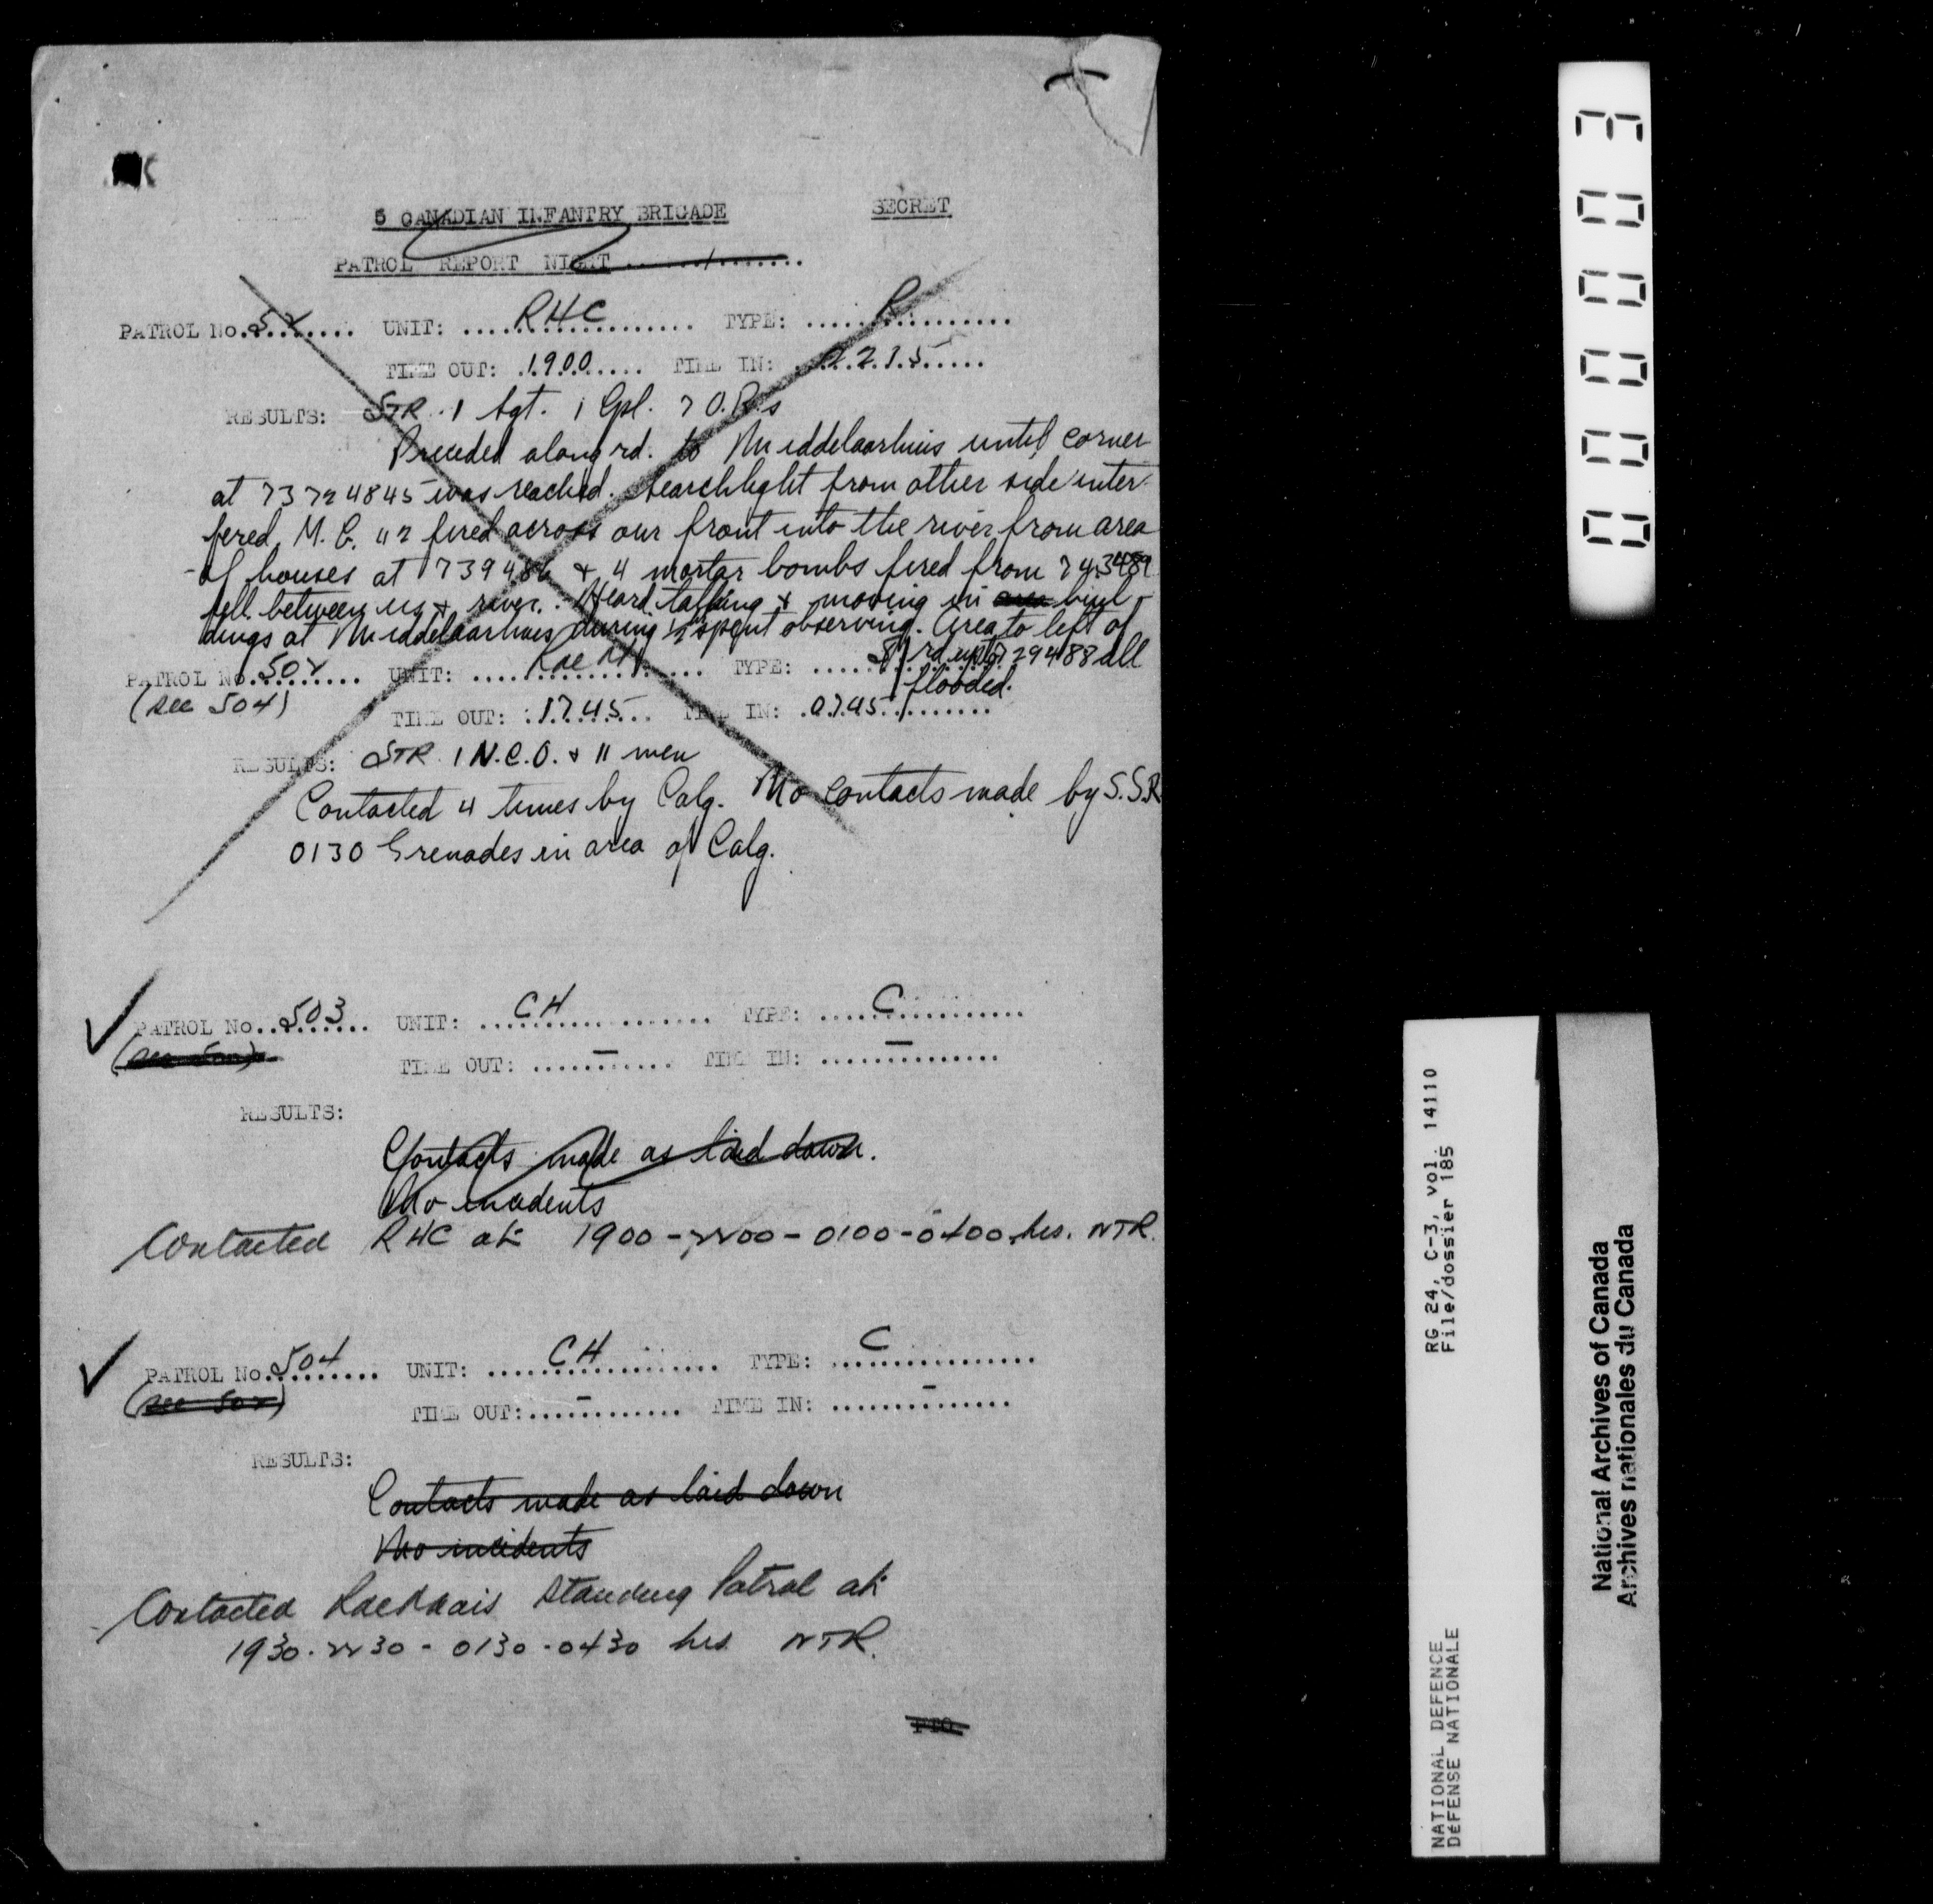 5 CANADIAN INFANTRY BRIGADE SECRET
PATROL REPORT NIGHT
PATROL No. 52 UNIT: RHC TYPE: R
TIME OUT: 1900 TIME IN: 2215
RESULTS: STR. 1 Sgt. 1 Cpl. 7 O.R.s
along rd. to Middelaarhuis until corner
at 7372 4845 was reached. Searchlight from other side inter
fered. M.G. 42 fired across our front into the river from area
of houses at 739486 & 4 mortar bombs fired from 743489
fell between us & river. Heard talking & moving in buil-
dings at Middelaarhuis during ½ spent observing. Area to left of
rd. up to 729488 all
flooded.
PATROL No. 502 UNIT: TYPE: S
(see 504)
TIME OUT: 1745 TIME IN: 0745
RESULTS: STR. 1 N.C.O. & 11 men
Contacted 4 times by Calg. No contacts made by S.S.R
0130 Grenades in area of Calg.
PATROL No. 503 UNIT: CH TYPE: C
TIME OUT: – TIME IN: –
RESULTS:
Contacts made as laid down.
No incidents
Contacted RHC at 1900 - 2200 - 0100 - 0400 hrs. NTR.
PATROL No. 504 UNIT: CH TYPE: C
(see 502)
TIME OUT: – TIME IN: –
RESULTS:
Contacts made as laid down
No incidents
Contacted Standing Patrol at
1930 - 2230 - 0130 - 0430 hrs NTR.
PTO
000003
RG 24, C-3, vol. 14110
File/dossier 185
NATIONAL DEFENCE
DÉFENSE NATIONALE
National Archives of Canada
Archives nationales du Canada